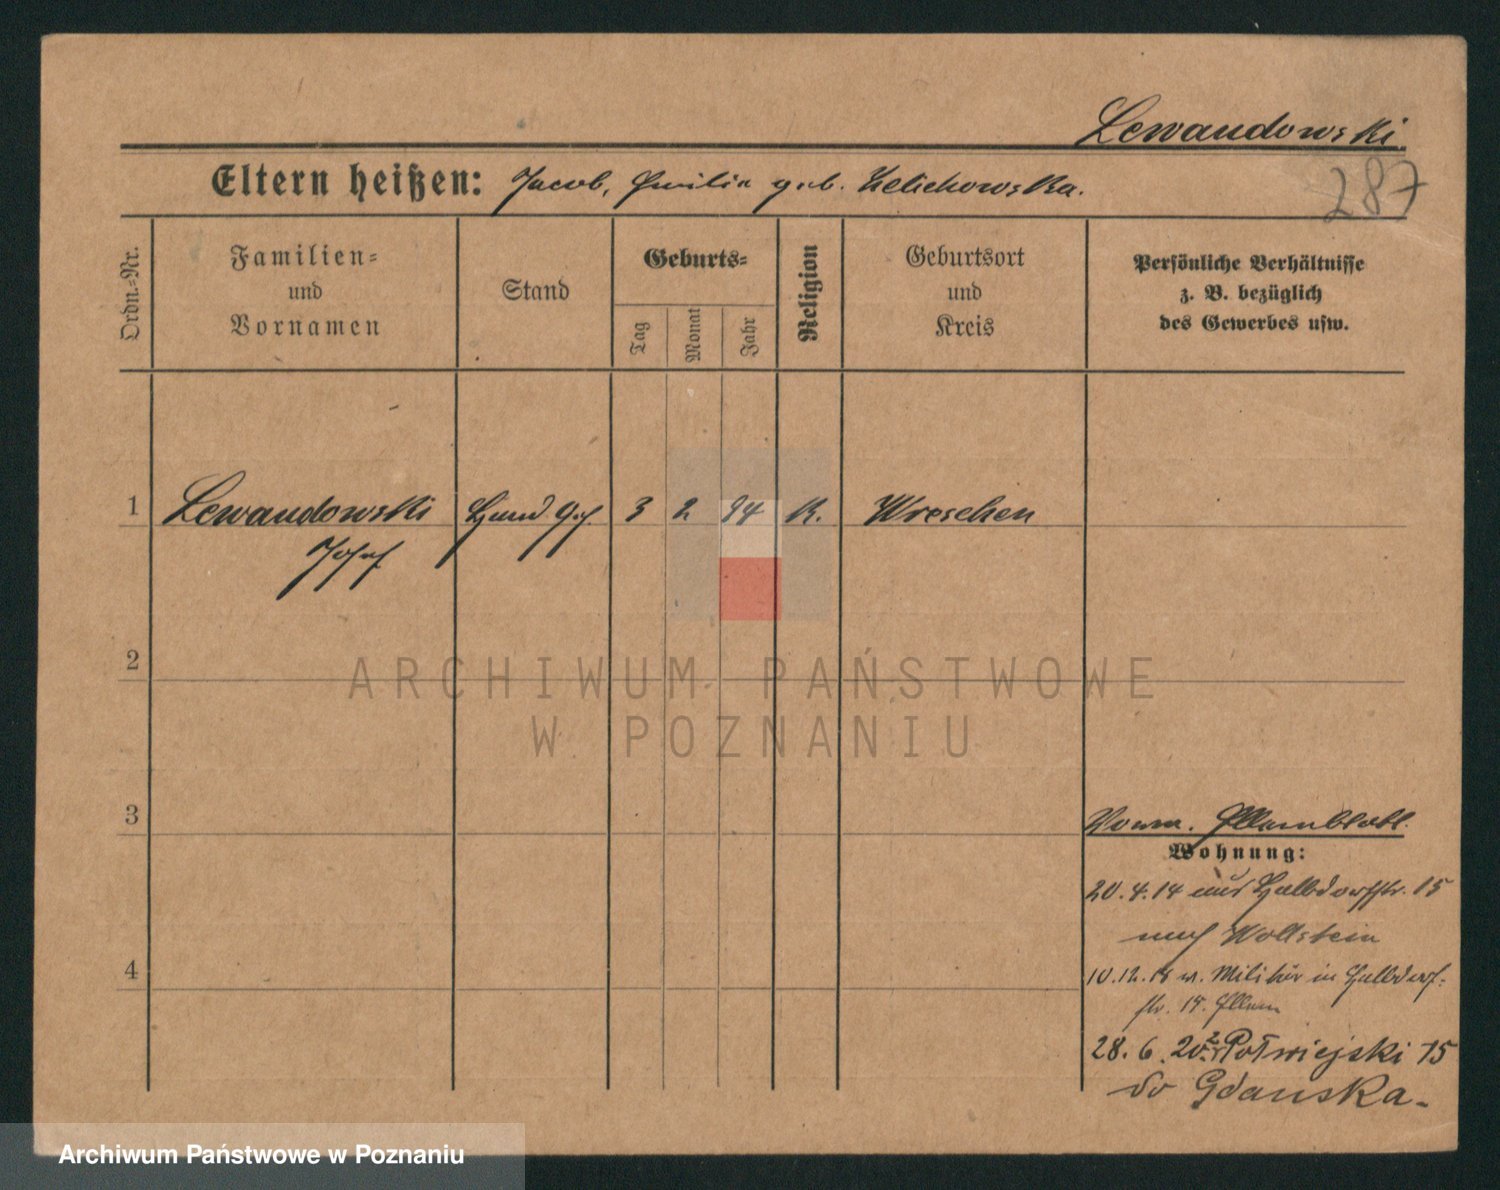 Lewandowski
287
Eltern heißen: Jacob, Emilia geb. Zelichowska.
Ordn.-Nr.
Familien- und Vornamen
Stand
Geburts-
Tag
Monat
Jahr
Religion
Geburtsort und Kreis
Persönliche Verhältnisse z. B. bezüglich des Gewerbes usw.
1 Lewandowski 3 2 94 K. Wreschen
Josef
2
3
4
Elternblatt.
Wohnung:
20.4.14 aus Halbdorfstr. 15
nach Wollstein
10.12.18 v. Militär in Halbdorf-
str. 15. Eltern
28. 6. 20 z Półwiejski 15
do Gdańska.
ARCHIWUM PAŃSTWOWE
W POZNANIU
Archiwum Państwowe w Poznaniu